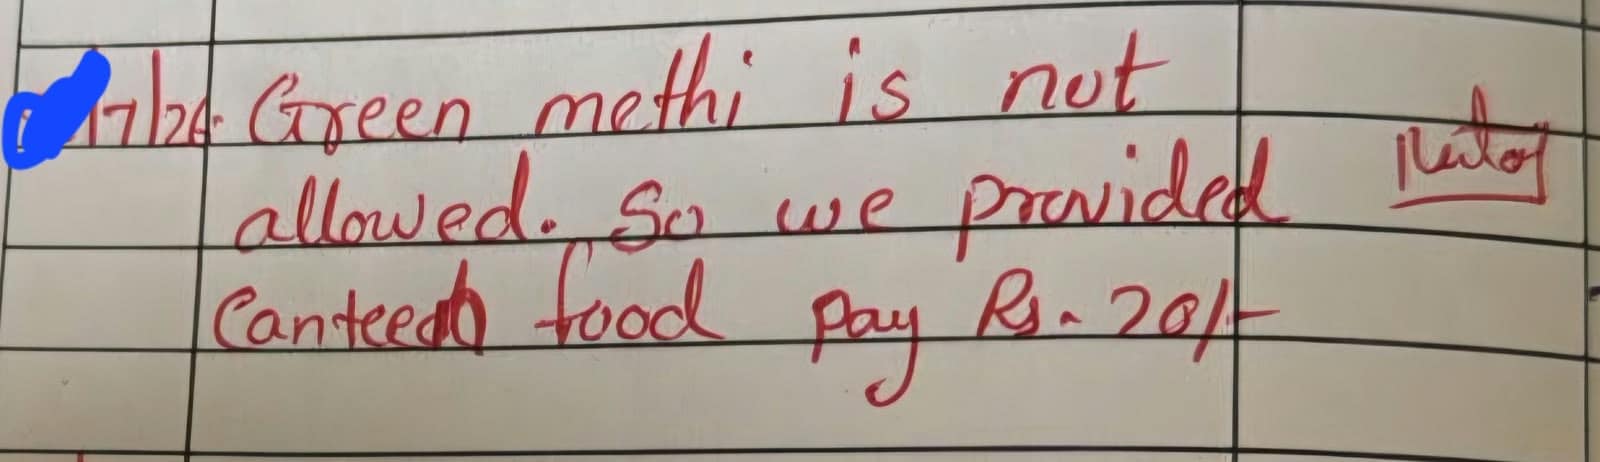 /7/26. Green methi is not
allowed. So we provided
Canteen food pay Rs. 20/-